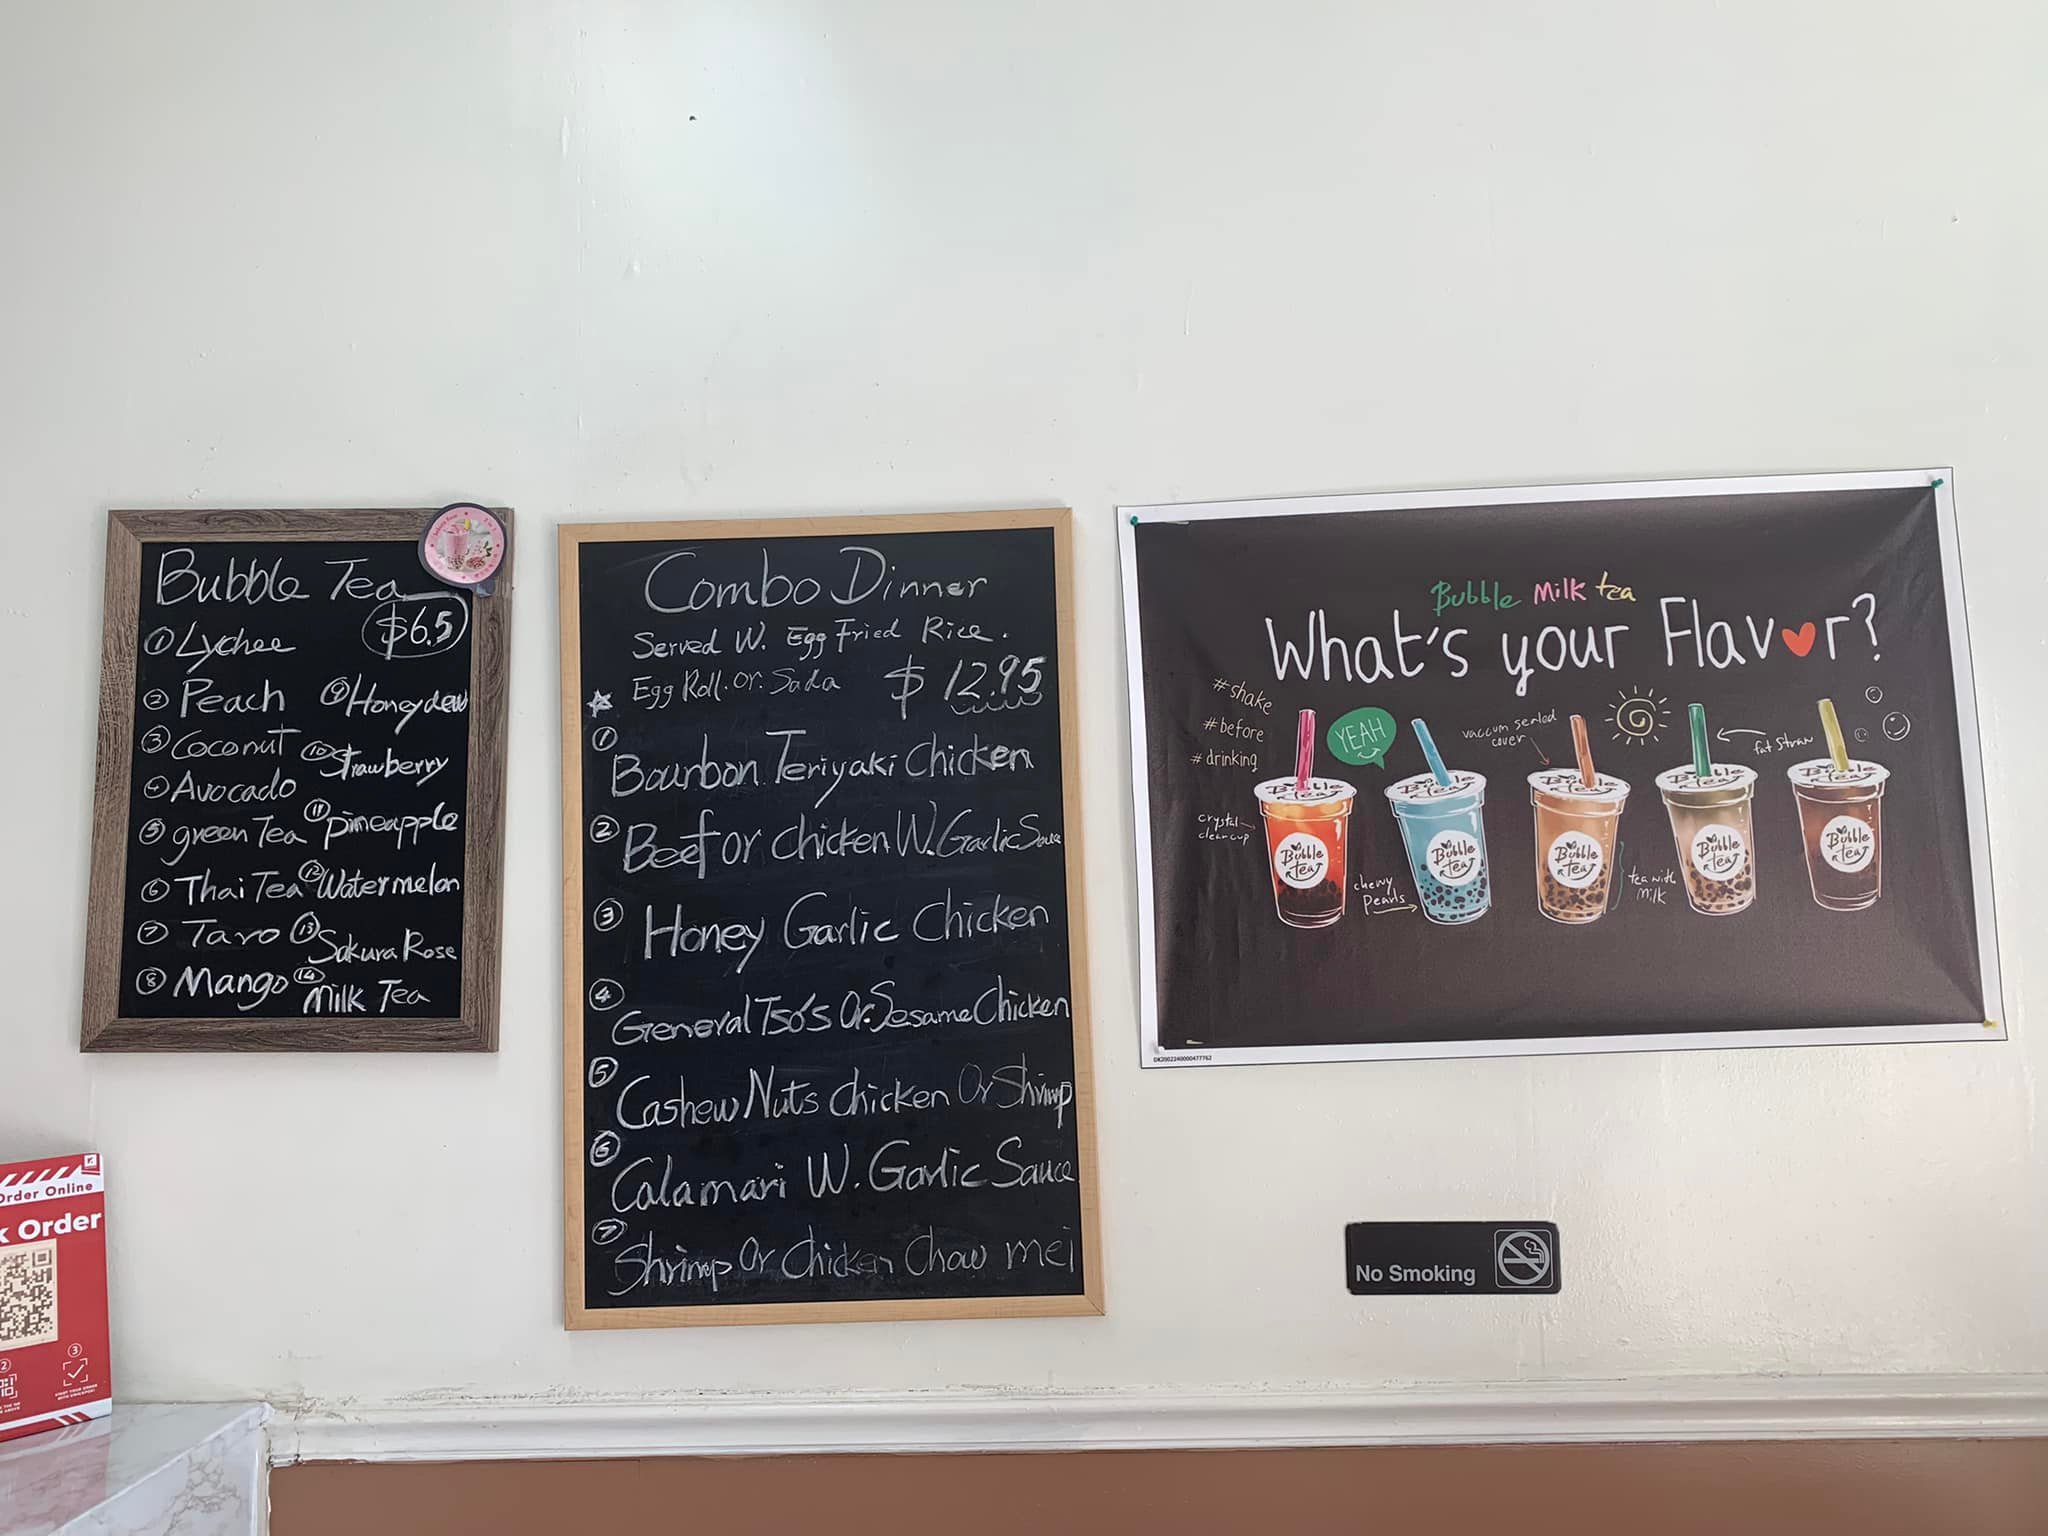 Bubble Tea
$6.5
① Lychee
② Peach
③ Coconut
④ Avocado
⑤ green Tea
⑥ Thai Tea
⑦ Taro
⑧ Mango
⑨ Honeydew
⑩ Strawberry
⑪ pineapple
⑫ Watermelon
⑬ Sakura Rose
⑭ Milk Tea
Combo Dinner
Served W. Egg Fried Rice.
Egg Roll. or. Sada $12.95
① Bourbon Teriyaki Chicken
② Beef or chicken W. Garlic Sauce
③ Honey Garlic Chicken
④ General Tso's Or. Sesame Chicken
⑤ Cashew Nuts chicken Or Shrimp
⑥ Calamari W. Garlic Sauce
⑦ Shrimp Or Chicken Chow mei
Bubble Milk tea
What's your Flavor?
#shake
#before
#drinking
YEAH
vaccum sealed
cover
fat straw
crystal
clean cup
chewy
Pearls
tea with
milk
Bubble Tea
Bubble Tea
Bubble Tea
Bubble Tea
Bubble Tea
Bubble Tea
Bubble Tea
Bubble Tea
Bubble Tea
Bubble Tea
DK2002240000477762
No Smoking
Order Online
k Order
②
③